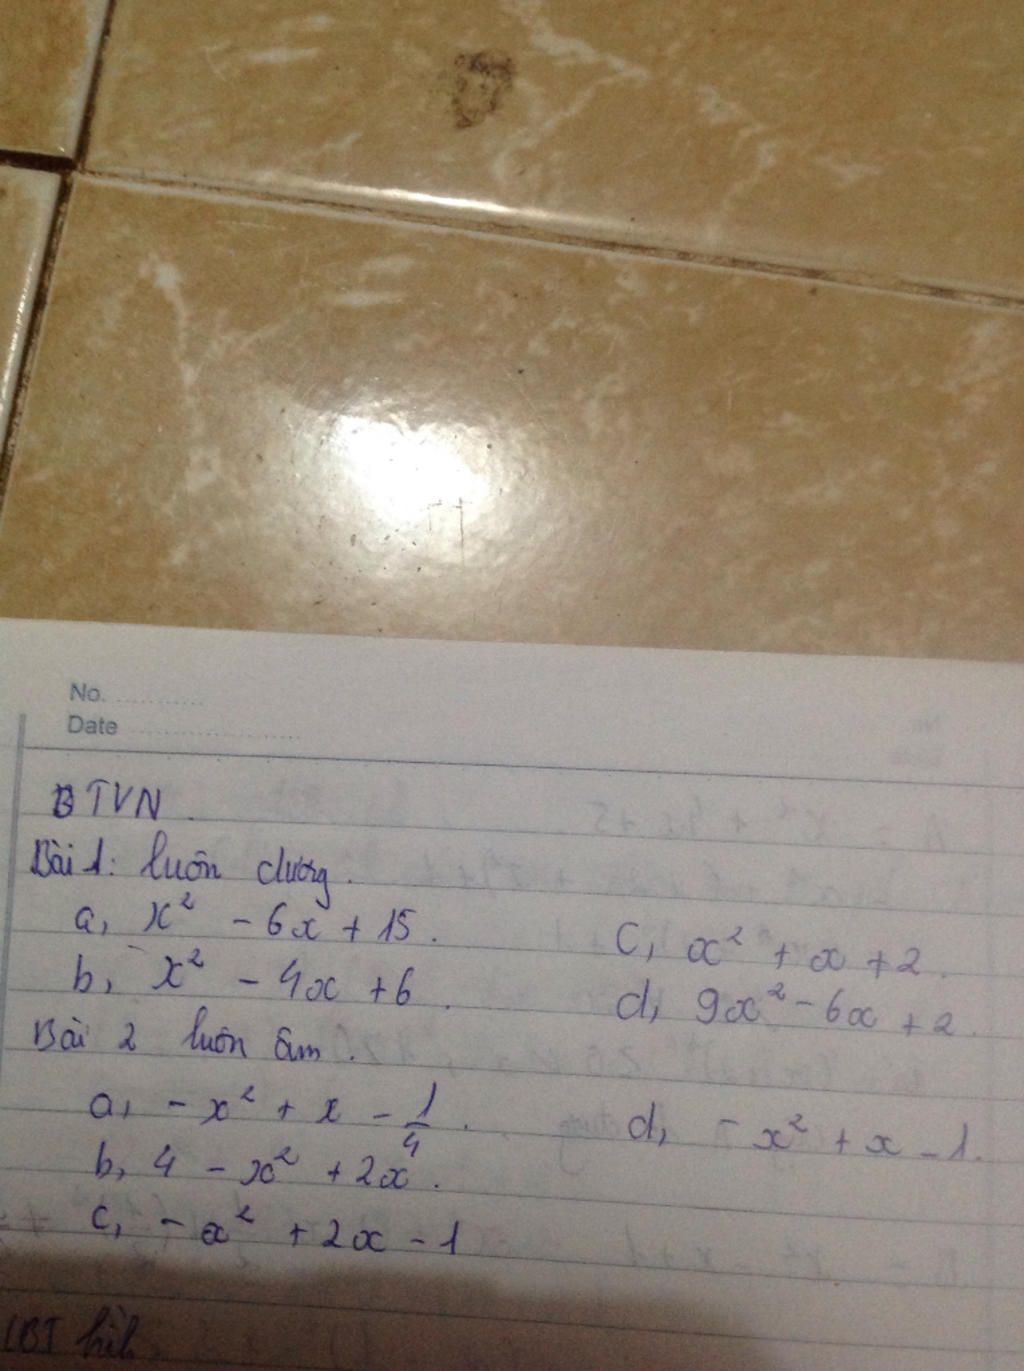 No. ............
Date ........................
BTVN.
Bài 1: luôn dương.
a, x² - 6x + 15.
c, x² + x + 2.
b, x² - 4x + 6.
d, 9x² - 6x + 2.
Bài 2 luôn âm.
a, - x² + x - 1/4.
d, - x² + x - 1.
b, 4 - x² + 2x.
c, - x² + 2x - 1